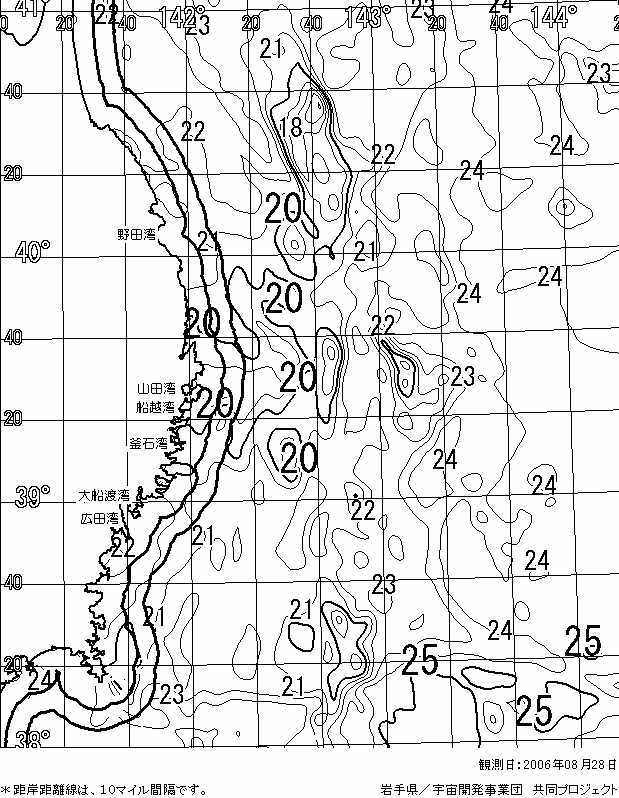 41° 20 22 142° 23 20 21 40 143° 23 20 24 144° 2
23
40
18
22
22 24 24
20
20
野田湾
21 21
40°
24
20 24
20 22
40
20 23
山田湾
船越湾
20
20
釜石湾
20 24
大船渡湾 24
39°
広田湾 22
22 21
24
40 23
21 21 24
25
20 25
24 23 21
25
38°
観測日:2006年08月28日
＊距岸距離線は、10マイル間隔です。 岩手県／宇宙開発事業団 共同プロジェクト